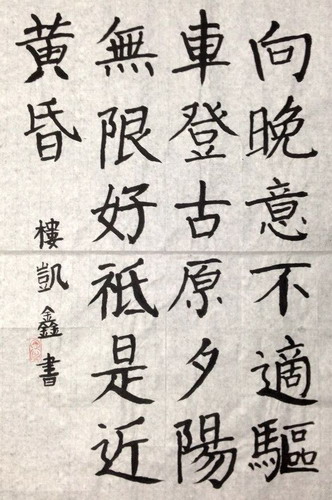 向晚意不適驅
車登古原夕陽
無限好祗是近
黃昏
樓凱鑫書